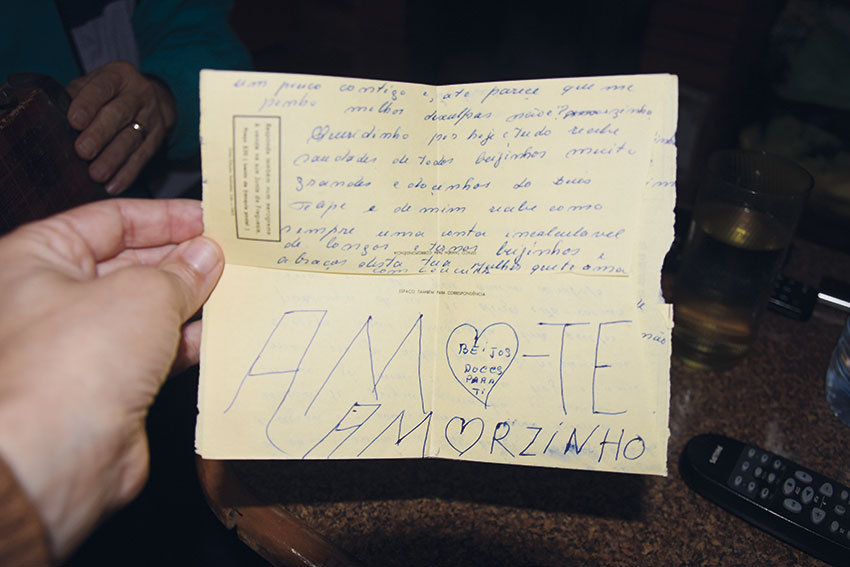 um pouco contigo e, até parece que me
ponho melhor desculpas não?
Queridinho por hoje é tudo recebe
saudades de todos beijinhos muito
grandes e docinhos do teus
e de mim recebe como
sempre uma conta incalculável
de longos e ternos beijinhos e
abraços desta tua mulher que te ama
com loucura
ESPAÇO TAMBÉM PARA CORRESPONDÊNCIA
AMO-TE
BEIJOS
DOCES
PARA
TI
AMORZINHO
não
PHILIPS